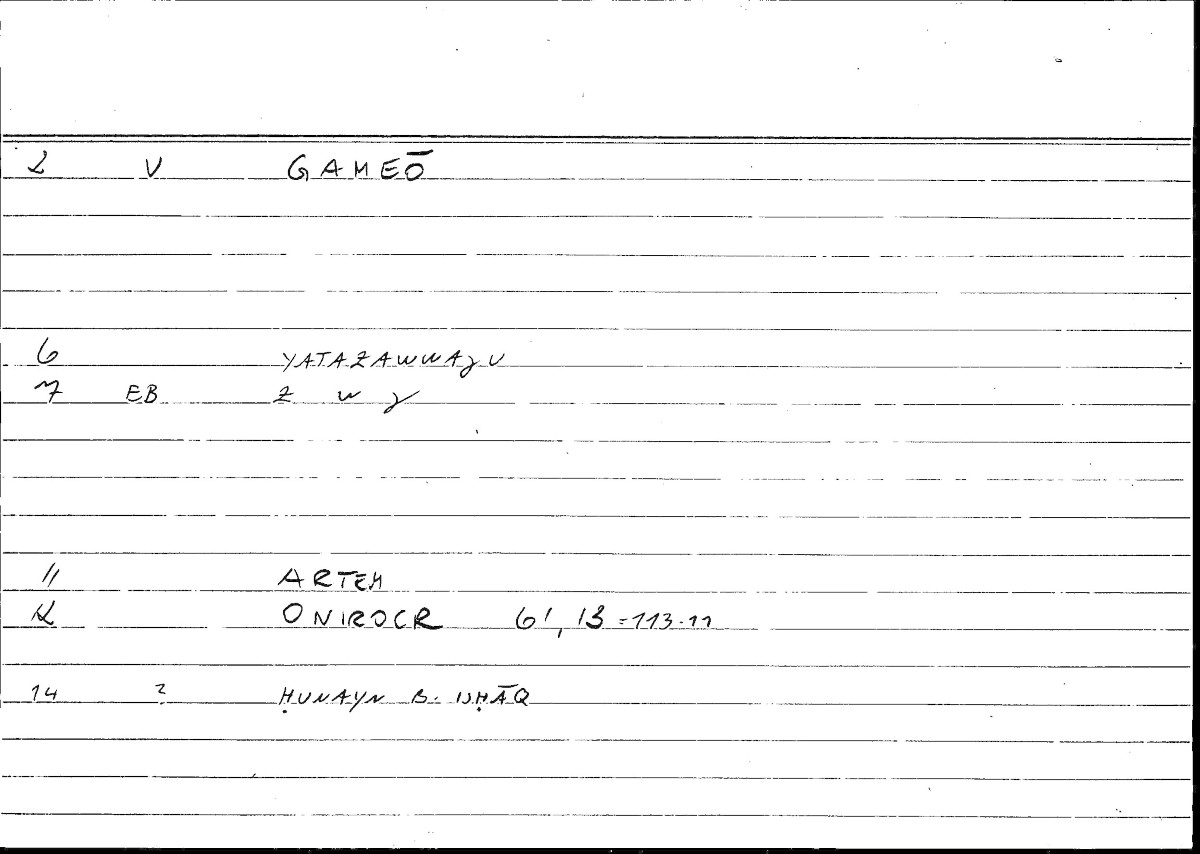 2 V GAMEŌ
6 YATAZAWWAJU
7 EB Z W J
11 ARTEM
12 ONIROCR 61,13 = 113.11
14 2 ḤUNAYN B. ISḤĀQ